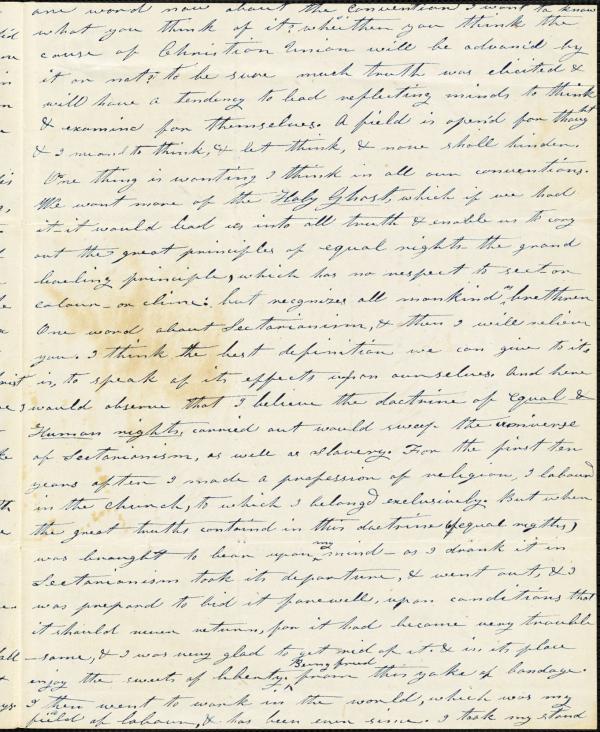 one word now about the Convention I want to know
what you think of it? wheither you think the
cause of Christian Union will be advancd by
it or not? to be sure much truth was elicited &
will have a tendency to lead reflecting minds to think
& examine for themselves. A field is opend for thought
& I meand to think, & let think, & none shall hinder.
One thing is wanting I think in all our conventions.
We want more of the Holy Ghost, which if we had
it it would lead us into all truth & enable us to cary
out the great principles of equal rights the grand
leveling principle, which has no respect to sect or
colour - or clime: but recognizes all mankind as brethren
One word about Sectarianism, & then I will relieve
you. I think the best definition we can give to it,
is, to speak of its effects upon ourselves. And here
I would observe that I believe the doctrine of equal &
Human rights, carried out would sweep the universe
of Sectarianism, as well as slavery. For the first ten
years after I made a profession of religion, I labourd
in the church, to which I belongd exclusively. But when
the great truths contained in this doctrine (of equal rigths)
was braught to bear upon my mind - as I drank it in
Sectarianism took its departure, & went out, & I
was prepard to bid it farewell, upon conditions that
it should never return, for it had become very trouble
-some, & I was very glad to get rid of it. & in its place
enjoy the sweets of liberty. Being freed from this yoke of bondage.
I then went to work in the world, which was my
field of labour, & has been ever since. I took my stand